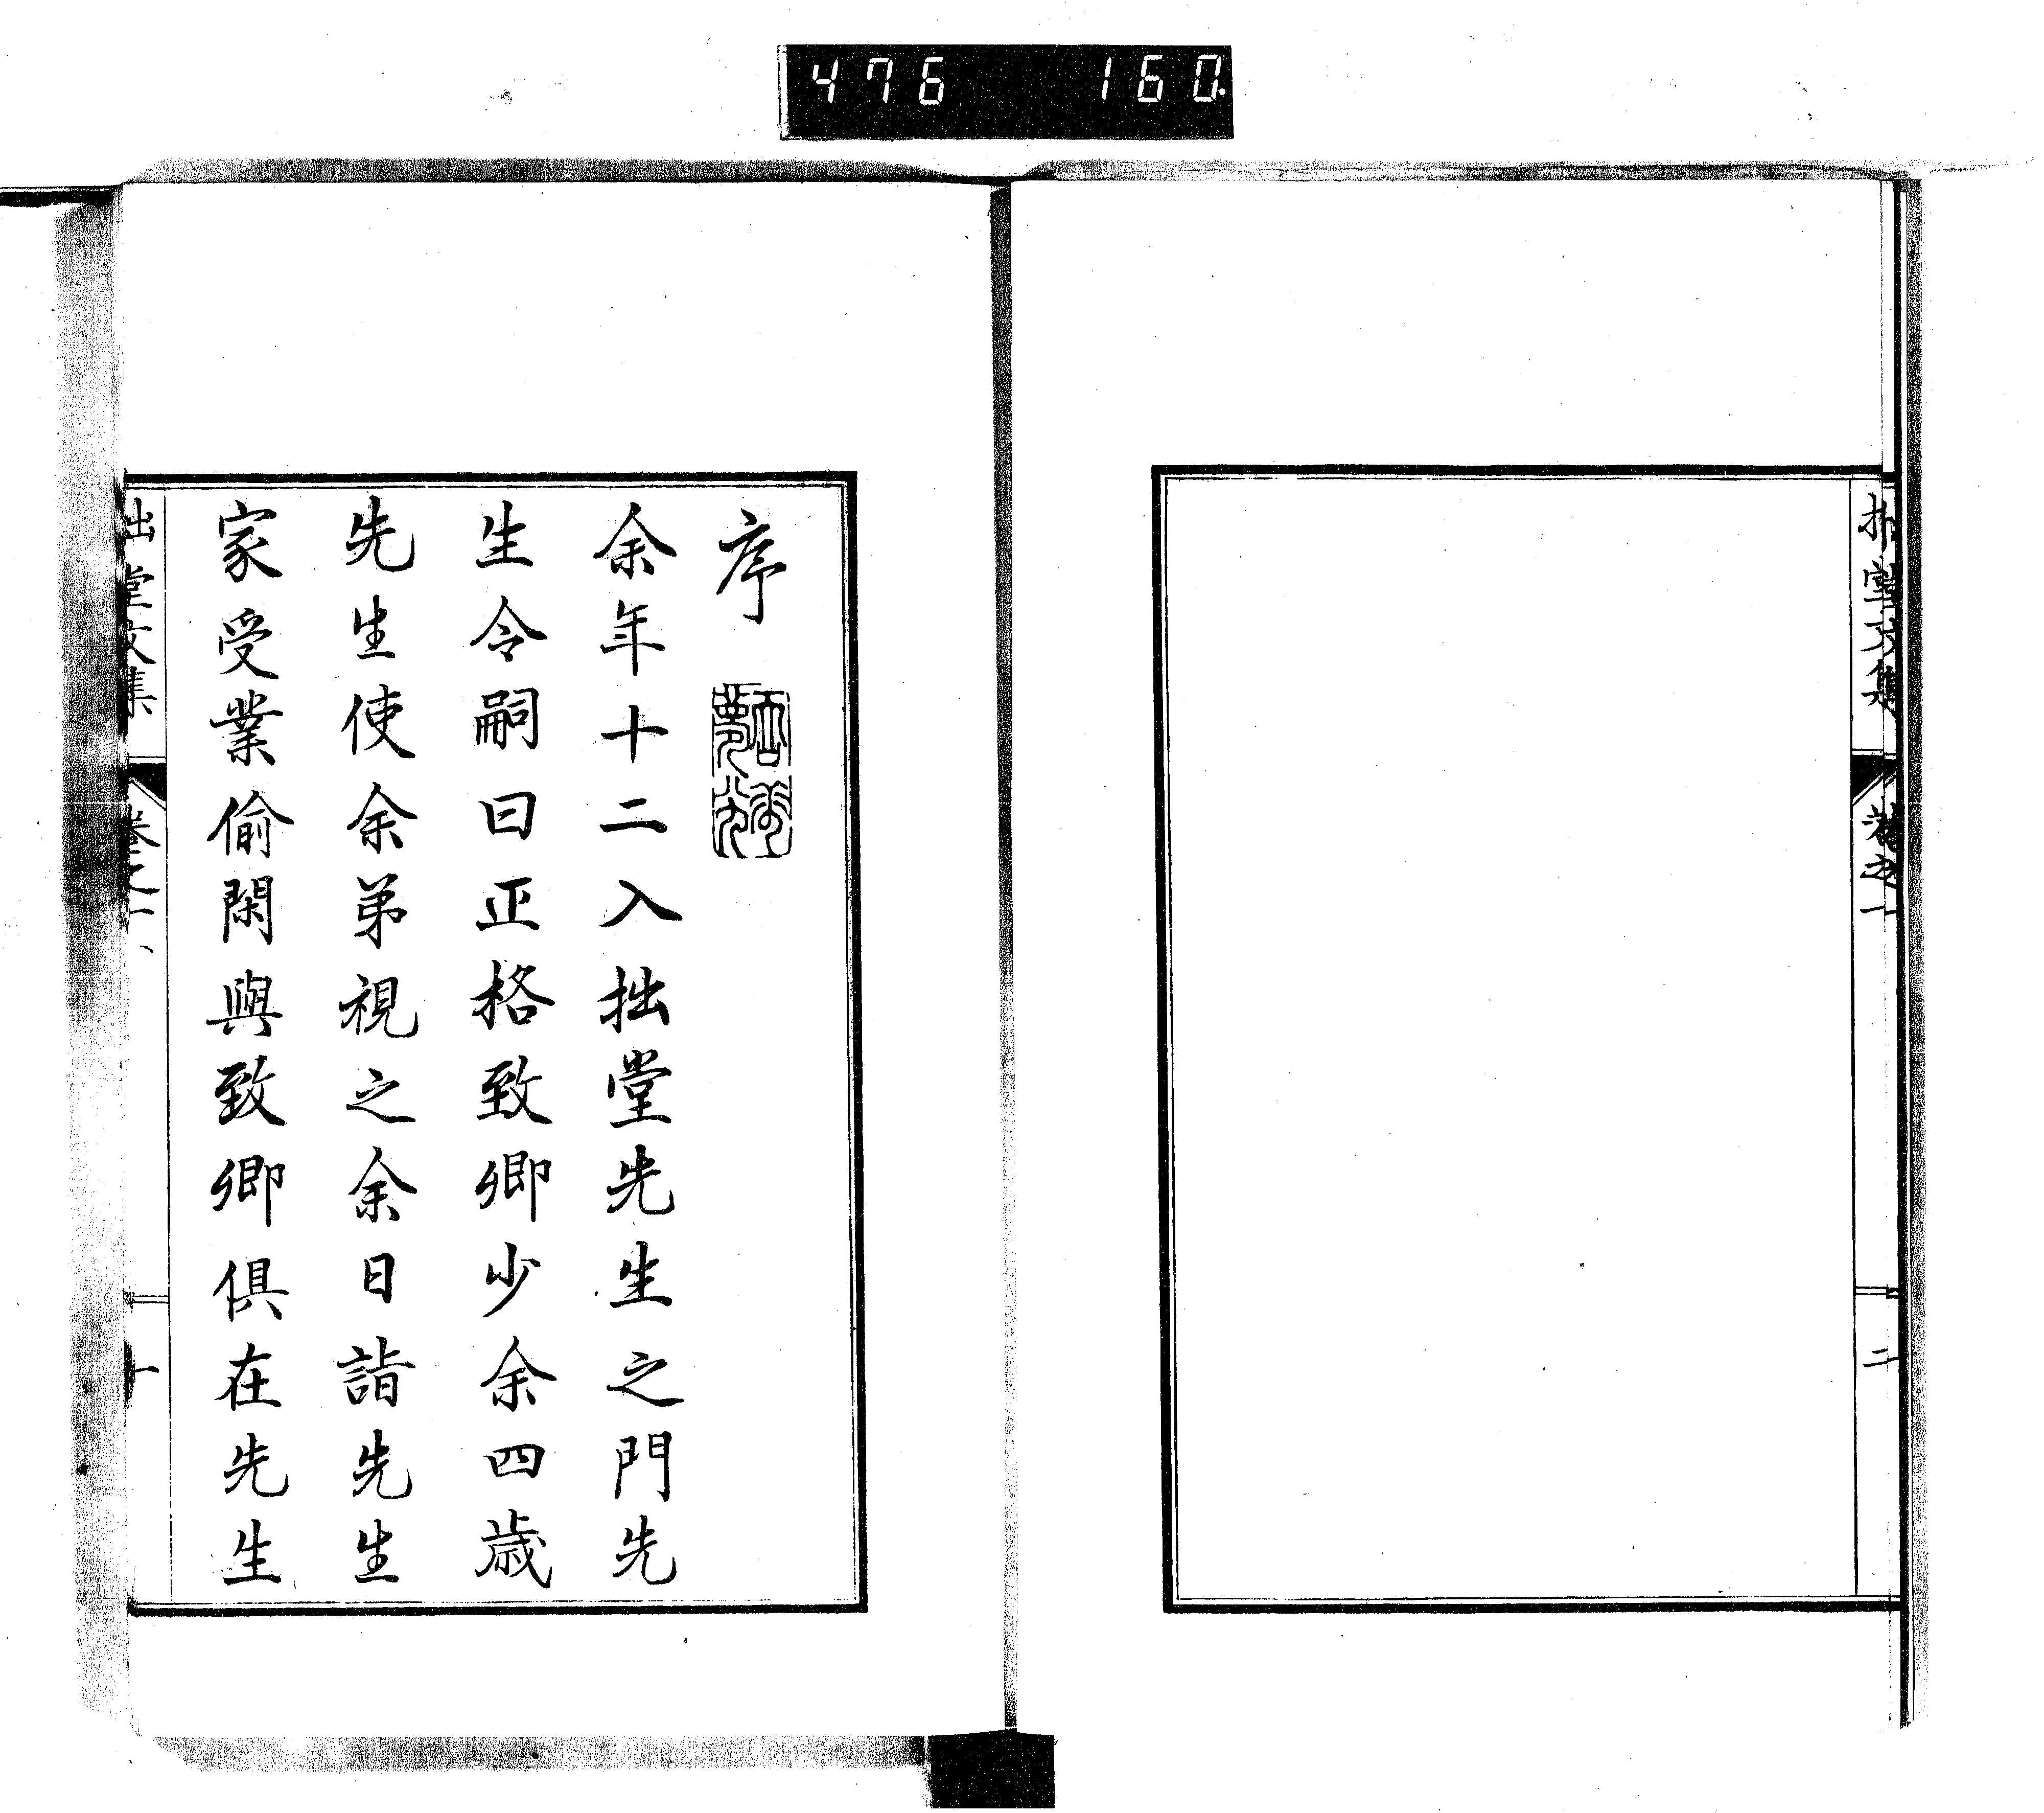 476 160
拙堂文集 卷之一
二
序
余年十二入拙堂先生之門先
生令嗣曰正格致卿少余四歳
先生使余弟視之余日詣先生
家受業偷閑與致卿俱在先生
拙堂文集 卷之一